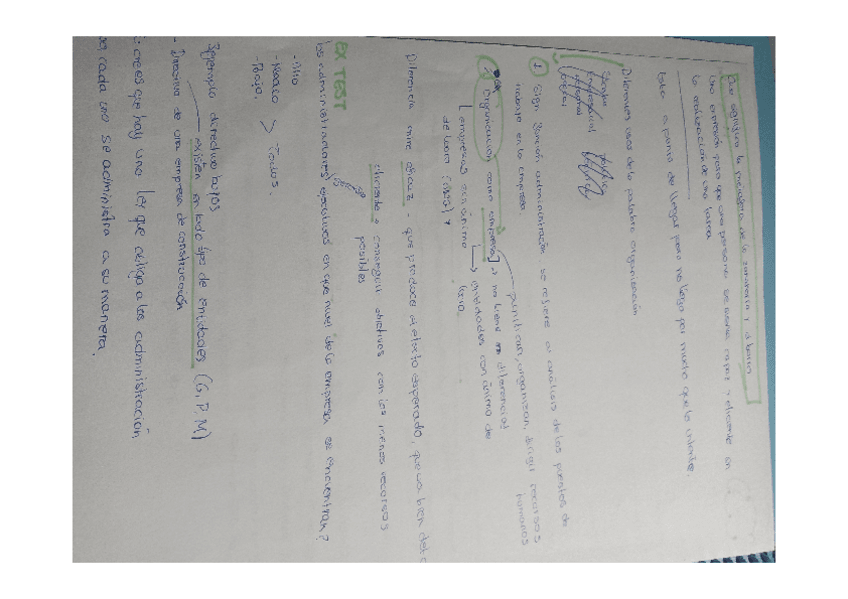 Que significa la metáfora de la zanahoria y el burro
Una expresión para que una persona sea capaz y eficiente en
la realización de una tarea
Esta a punto de llegar pero no llega por mucho que lo intente.
Diferentes usos de la palabra organización
① sign función administración, se refiere al análisis de los puestos de
trabajo en la empresa
planifican, organizan, dirigir recursos
humanos
② Organización como empresa no tiene diferencias
empresas sin ánimo
de lucro
entidades con ánimo de
lucro.
Diferencia entre eficaz - que produce el efecto esperado, que va bien
eficiente conseguir objetivos con los menos recursos
posibles
EX TEST
los administradores ejecutivos en que nivel de la empresa se encuentran?
- Alto
- Medio > Todos.
- Bajo.
Ejemplo directivo bajos
existen en todo tipo de entidades (G, P, M)
- Directiva de una empresa de construcción
crees que hay una ley que obliga a las administración
cada uno se administra a su manera.